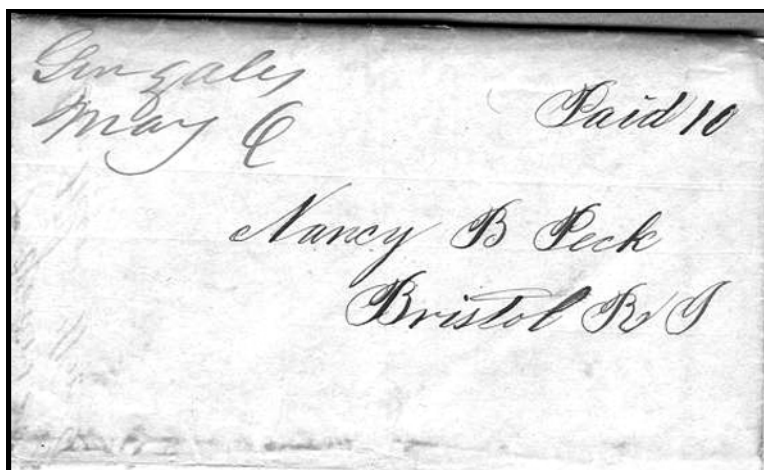 Gonzales
May 6
Paid 10
Nancy B Peck
Bristol R I